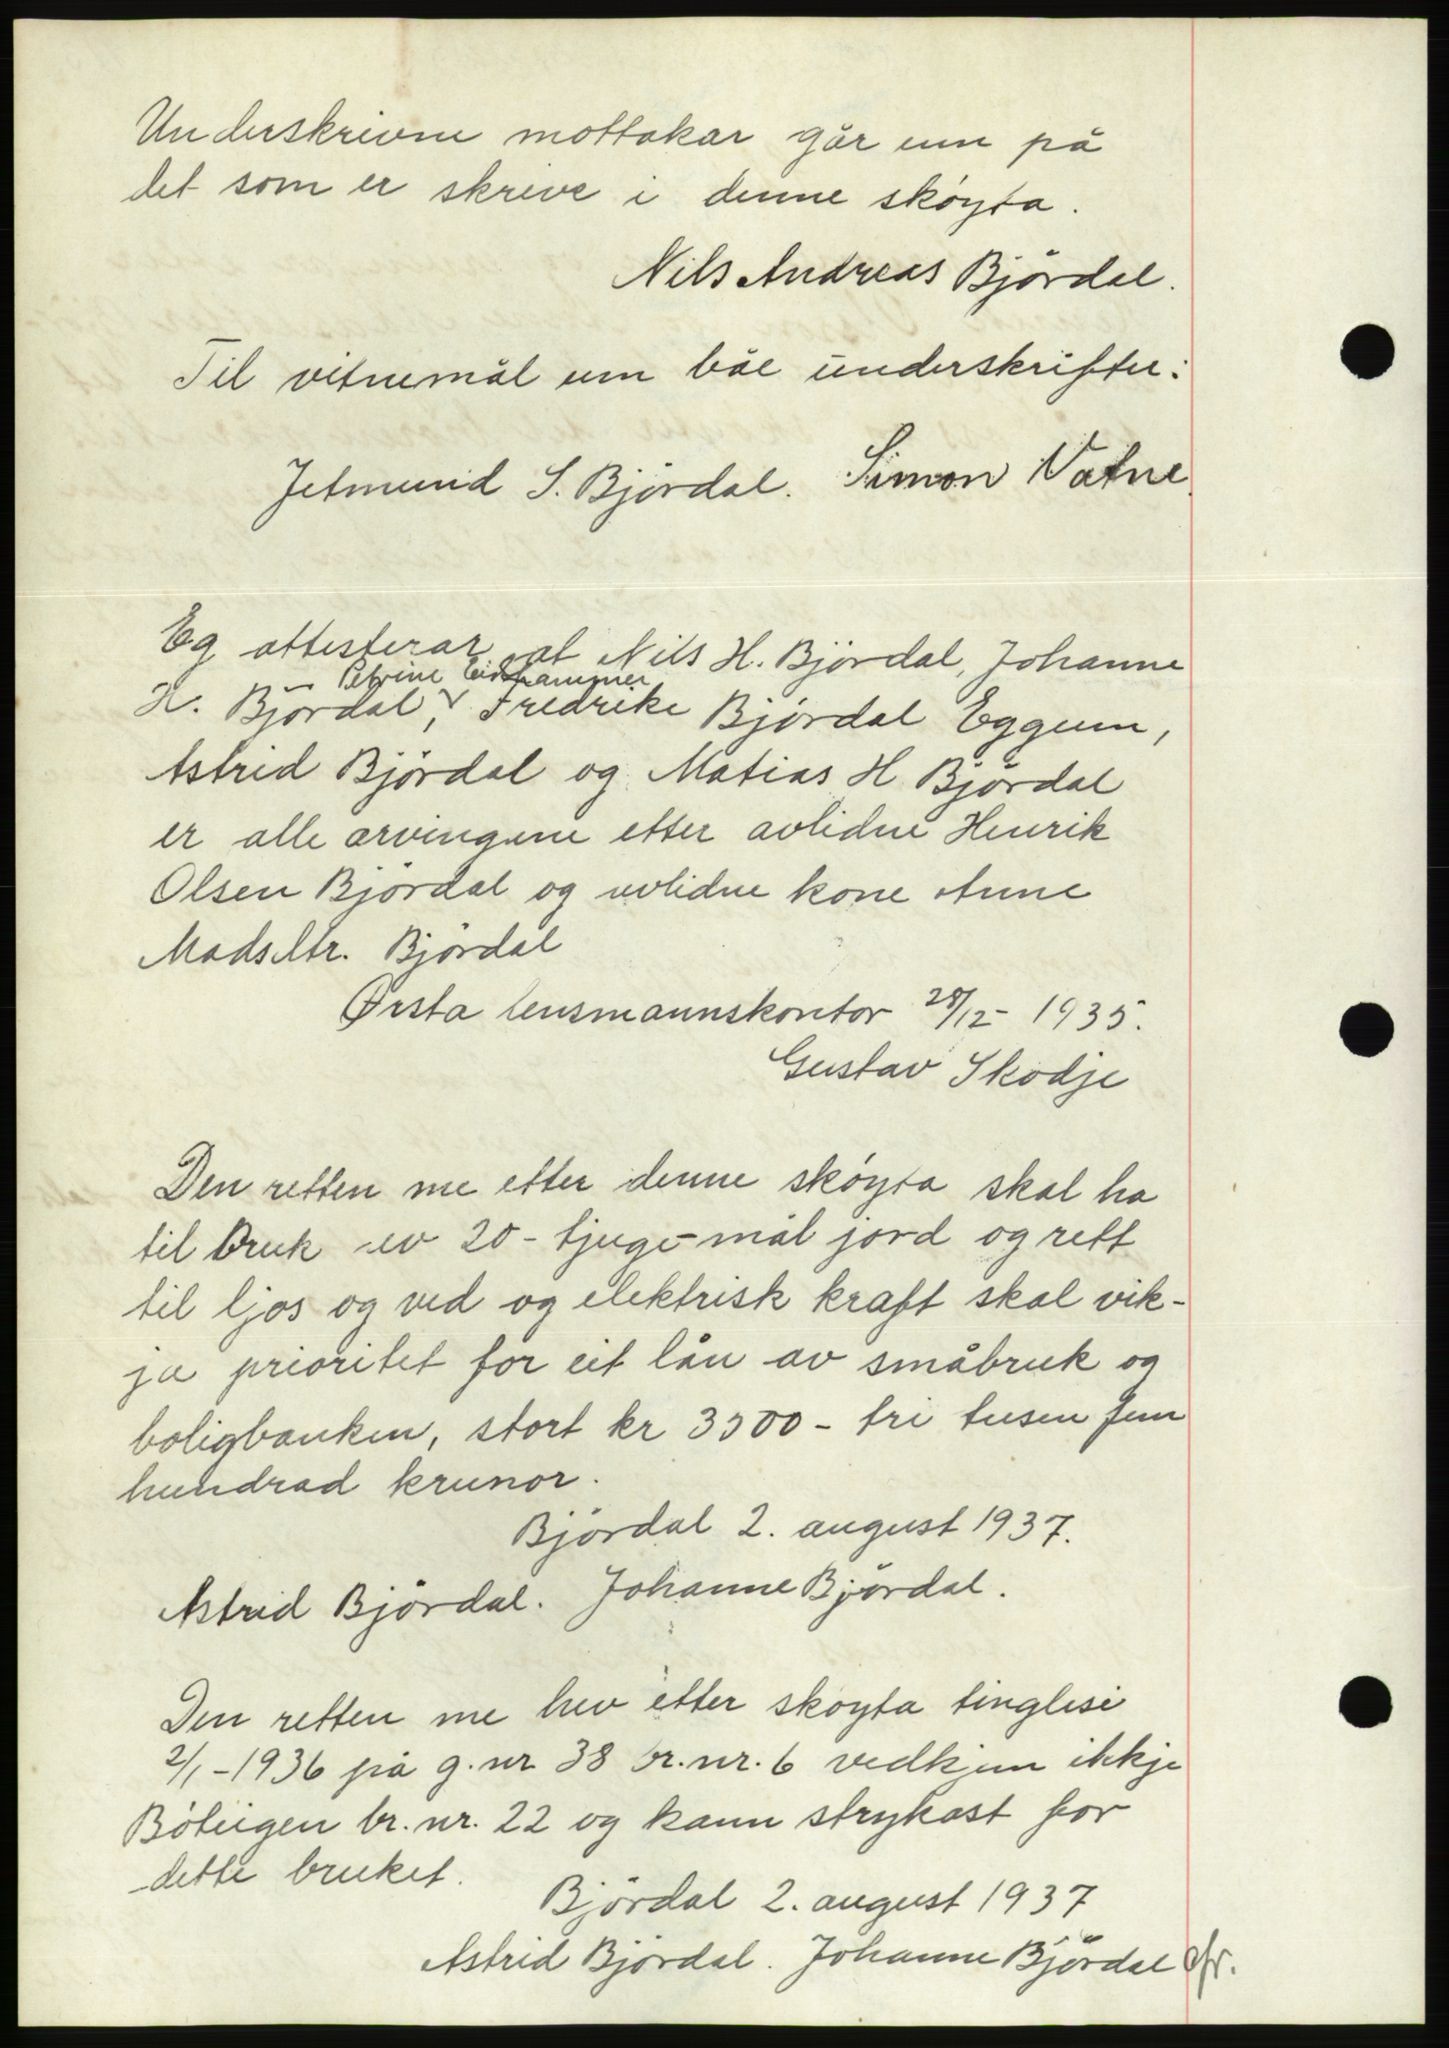 Underskrivne mottakar går inn på
det som er skreve i denne skøyta.
Nils Andreas Bjørdal.
Til vitnemål um båe underskrifter:
Jetmund S. Bjørdal. Simon Vatne
Eg attesterar at Nils H. Bjørdal, Johanne
Petrine Eidhammer
H. Bjørdal, Fredrike Bjørdal Eggum,
Astrid Bjørdal og Matias H Bjørdal
er alle arvingene etter avlidne Henrik
Olsen Bjørdal og avlidne kone Anne
Madsdtr. Bjørdal
Ørsta lensmannskontor 28/12- 1935.
Gustav Skodje
Den retten me etter denne skøyta skal ha
til bruk av 20- tjuge- mål jord og rett
til ljos og ved og elektrisk kraft skal vik-
ja prioritet for eit lån av småbruk og
boligbanken, stort kr 3500- tri tusen fem
hundrad krunor.
Bjørdal 2. august 1937.
Astrid Bjørdal. Johanne Bjørdal.
Den retten me hev etter skøyta tinglesi
2/1-1936 på g.nr 38 br.nr. 6 vedkjem ikkje
br.nr. 22 og kann strykast for
dette bruket.
Bjørdal 2. august 1937
Astrid Bjørdal. Johanne Bjørdal